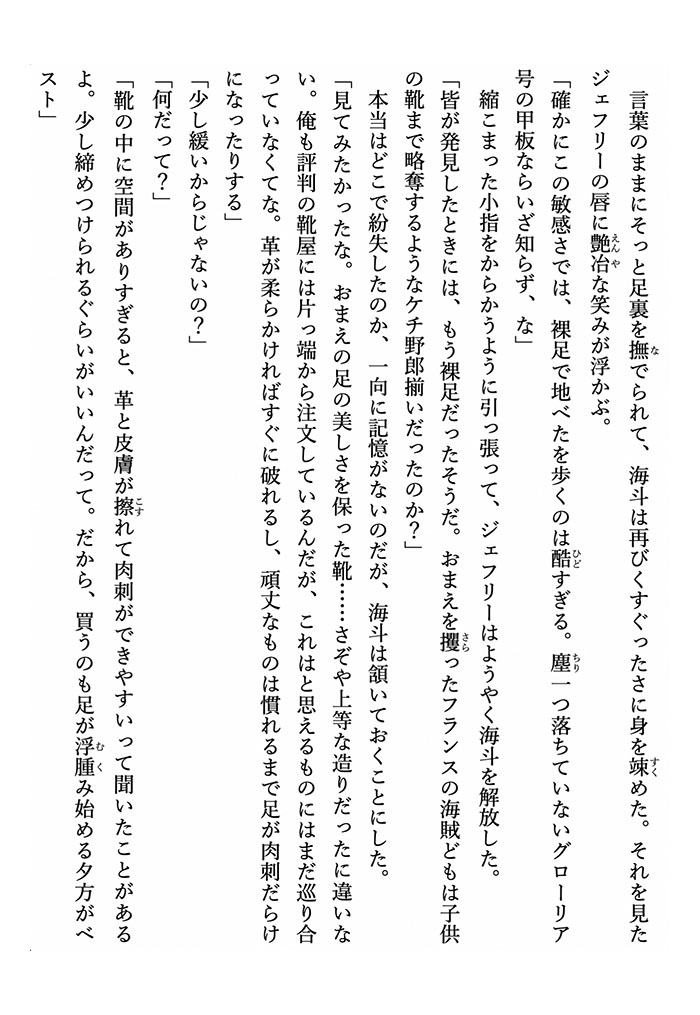 言葉のままにそっと足裏を撫でられて、海斗は再びくすぐったさに身を竦めた。それを見た
ジェフリーの唇に艶冶な笑みが浮かぶ。
「確かにこの敏感さでは、裸足で地べたを歩くのは酷すぎる。塵一つ落ちていないグローリア
号の甲板ならいざ知らず、な」
縮こまった小指をからかうように引っ張って、ジェフリーはようやく海斗を解放した。
「皆が発見したときには、もう裸足だったそうだ。おまえを攫ったフランスの海賊どもは子供
の靴まで略奪するようなケチ野郎揃いだったのか？」
本当はどこで紛失したのか、一向に記憶がないのだが、海斗は頷いておくことにした。
「見てみたかったな。おまえの足の美しさを保った靴……さぞや上等な造りだったに違いな
い。俺も評判の靴屋には片っ端から注文しているんだが、これはと思えるものにはまだ巡り合
っていなくてな。革が柔らかければすぐに破れるし、頑丈なものは慣れるまで足が肉刺だらけ
になったりする」
「少し緩いからじゃないの？」
「何だって？」
「靴の中に空間がありすぎると、革と皮膚が擦れて肉刺ができやすいって聞いたことがある
よ。少し締めつけられるぐらいがいいんだって。だから、買うのも足が浮腫み始める夕方がベ
スト」